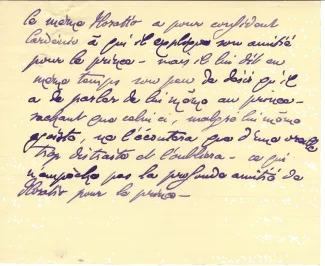 le même Horatio a pour confident
Cardénio à qui il explique son amitié
pour le prince - mais il lui dit en
même temps son peu de désir qu'il
a de parler de lui même au prince -
sachant que celui ci, malgré lui même
égoïste, ne l'écoutera que d'une oreille
trop distraite et l'oubliera - ce qui
n'empêche pas la profonde amitié de
Horatio pour le prince -